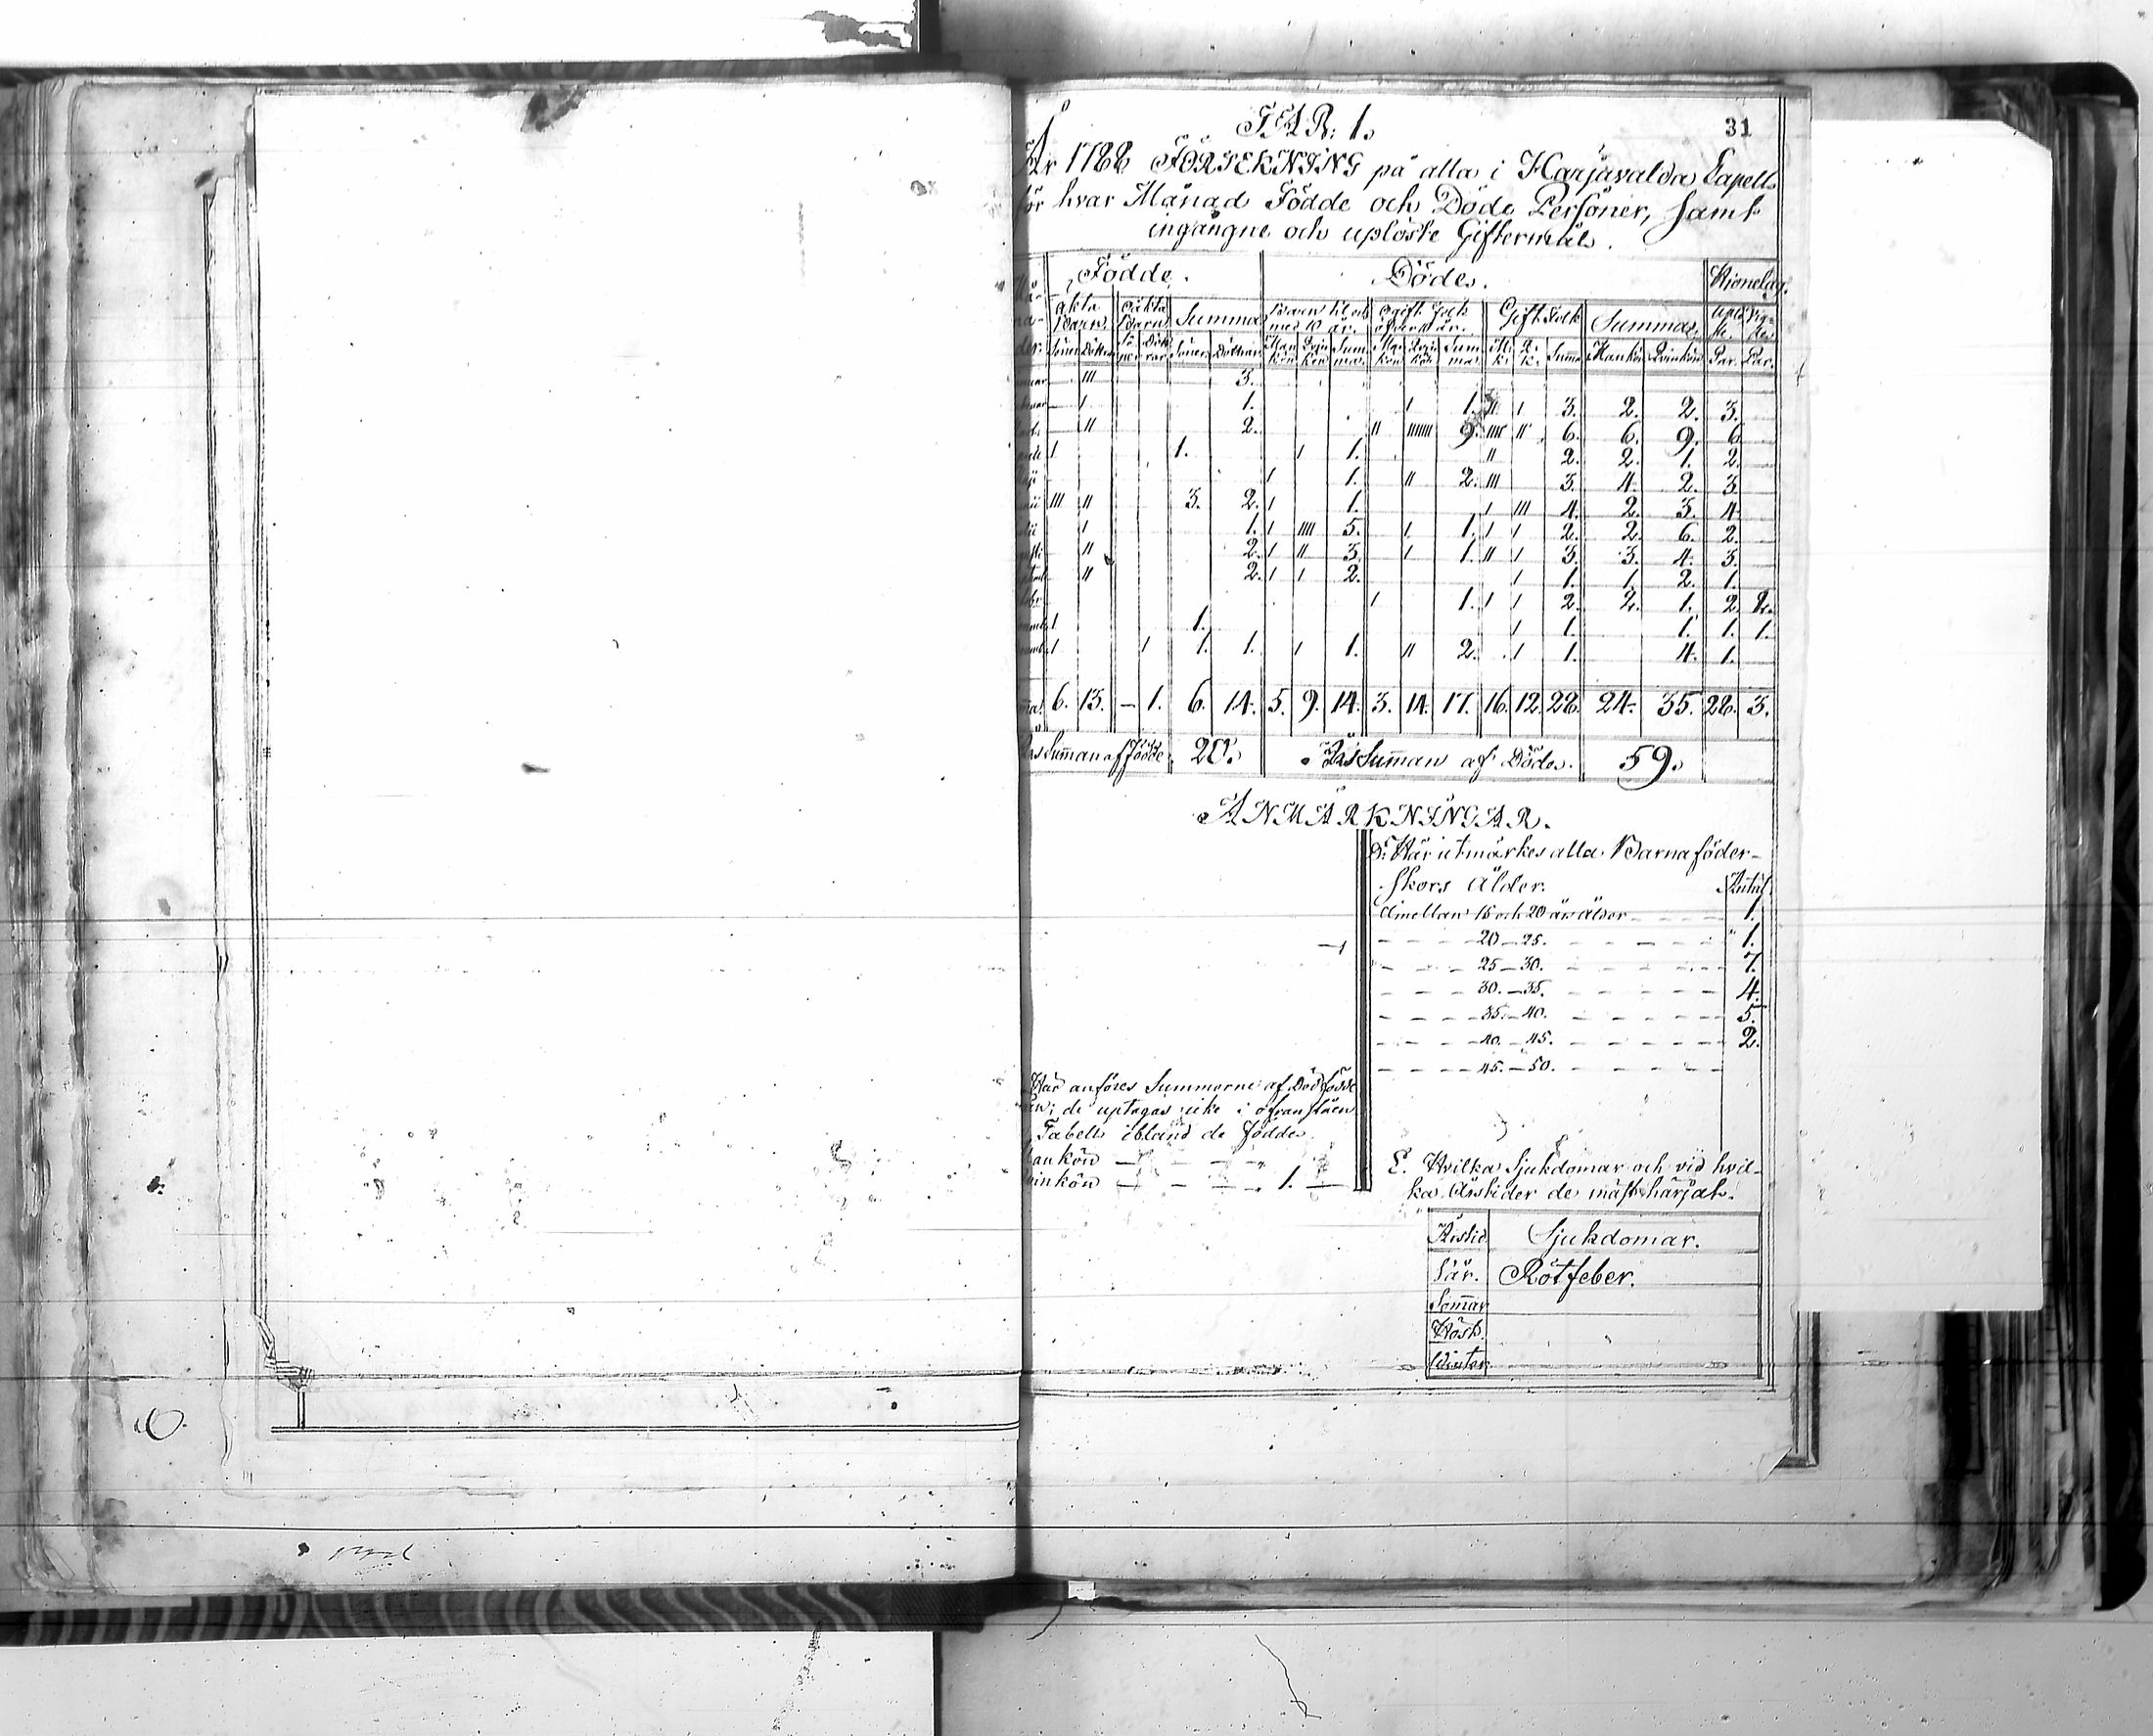 31
TAB: 1.
År 1788 FÖRTEKNING på alla i Harjavalda Capell
för hvar Månad Födde och Döde Personer, samt
ingångne och uplöste Giftermål.
Födde. Döde. Hionelag.
äkta Barn. oäkta Barn Summa Barn til och med 10 år. ogift folk öfver 10 år. Gift Folk Summa. uplöste. Vigde.
Söner Döttrar Söner Döttrar Söner Döttrar Man kön Qvin kön Summa Man kön Qvin kön Summa M. k. Q. k. Summa Mankön Qvinkön Par. Par.
III 3.
I 1. I 1. II I 3. 2. 2. 3.
II 2. II IIIIIII 9. IIII II 6. 6. 9. 6.
I 1. I 1. II 2. 2. 1. 2.
I 1. II 2. III 3. 4. 2. 3.
III II 3. 2. I 1. I III 4. 2. 3. 4.
I 1. I IIII 5. I 1. I I 2. 2. 6. 2.
II 2. I II 3. I 1. II I 3. 3. 4. 3.
II 2. I I 2. I 1. 1. 2. 1.
I 1. I I 2. 2. 1. 2. 2.
I 1. I 1. 1. 1. 1.
I I 1. 1. I 1. II 2. I 1. 4. 1.
6. 13. – 1. 6. 14. 5. 9. 14. 3. 14. 17. 16. 12. 28. 24. 35. 28. 3.
Summan af Födde. 20. Summan af Döde. 59.
ANMÄRKNINGAR.
D: Här utmärkes alla Barnaföder-
skors ålder. Antal
emellan 15 och 20 års ålder 1.
20 – 25. 1.
25 – 30. 7.
30. – 35. 4.
35. – 40. 5.
40. – 45. 2.
45. – 50.
Här anföres Summorne af Dödfödde
de uptagas icke i ofvanståen
Tabell ibland de födde.
Mankön
Qvinkön 1.
E. Hvilka Sjukdomar och vid hvil-
ka årstider de mäst härjat.
Årstid. Sjukdomar.
Vår. Rötfeber.
Sommar
Höst.
Winter